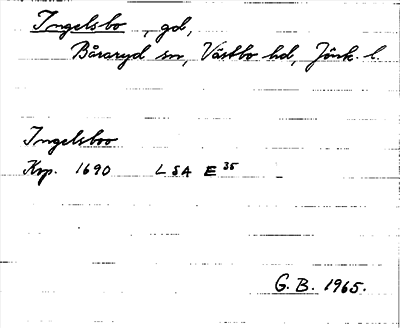 Ingelsbo, gd,
Båraryd sn, Västbo hd, Jönk. l.
Ingelsboo
Krp. 1690 LSA E 35
G. B. 1965.